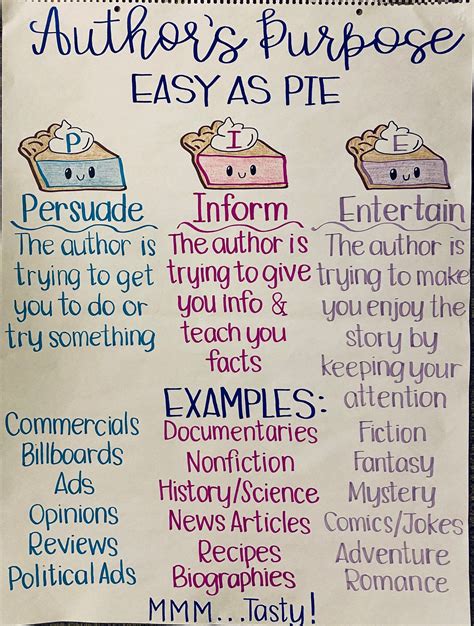 Author's Purpose
EASY AS PIE
P
Persuade
The author is
trying to get
you to do or
try something
I
Inform
The author is
trying to give
you info &
teach you
facts
E
Entertain
The author is
trying to make
you enjoy the
story by
keeping your
attention
EXAMPLES:
Commercials
Billboards
Ads
Opinions
Reviews
Political Ads
Documentaries
Nonfiction
History/Science
News Articles
Recipes
Biographies
Fiction
Fantasy
Mystery
Comics/Jokes
Adventure
Romance
MMM...Tasty!